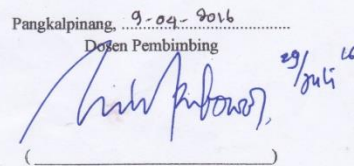 Pangkalpinang, 9-04-2016
Dosen Pembimbing
29/Juli 16
(                    )